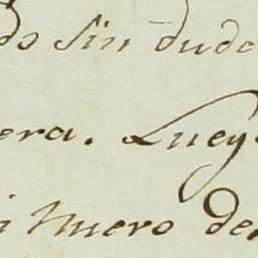 do sin duda
era. Luey
i nuero de